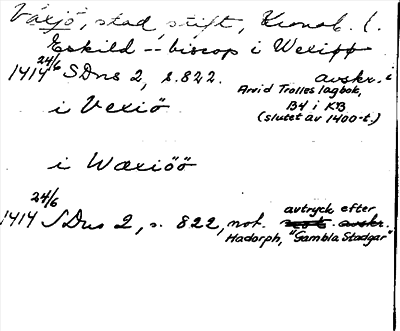 Växjö, stad, stift, Kronob. l.
Eskild -- biscop i Wexipp
1414 24/6 SDns 2, s. 822. avskr. i
Arvid Trolles lagbok,
B4 i KB
(slutet av 1400-t.)
i Vexiö
i Wæxiöö
24/6
1414 SDns 2, s. 822, not. avtryck efter
Hadorph, "Gambla Stadgar"